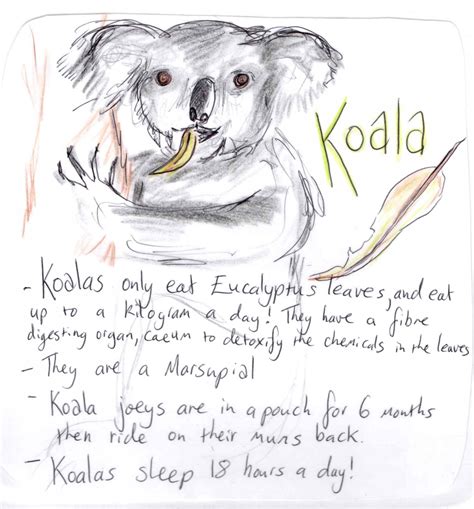 Koala
- Koalas only eat Eucalyptus leaves, and eat
up to a kilogram a day! They have a fibre
digesting organ, caeum to detoxify the chemicals in the leaves
- They are a Marsupial
- Koala joeys are in a pouch for 6 months
then ride on their mums back.
- Koalas sleep 18 hours a day!